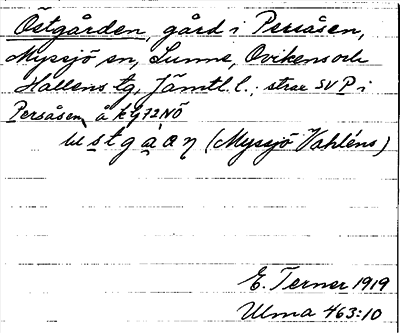 Östgården, gård i Persåsen,
Myssjö sn, Sunne, Ovikens och
Hallens tg, Jämtl. l.; strax SV P i
Persåsen å k 472 NÖ
stgáaŋ (Myssjö Vahléns)
E. Terner 1919
Ulma 463:10